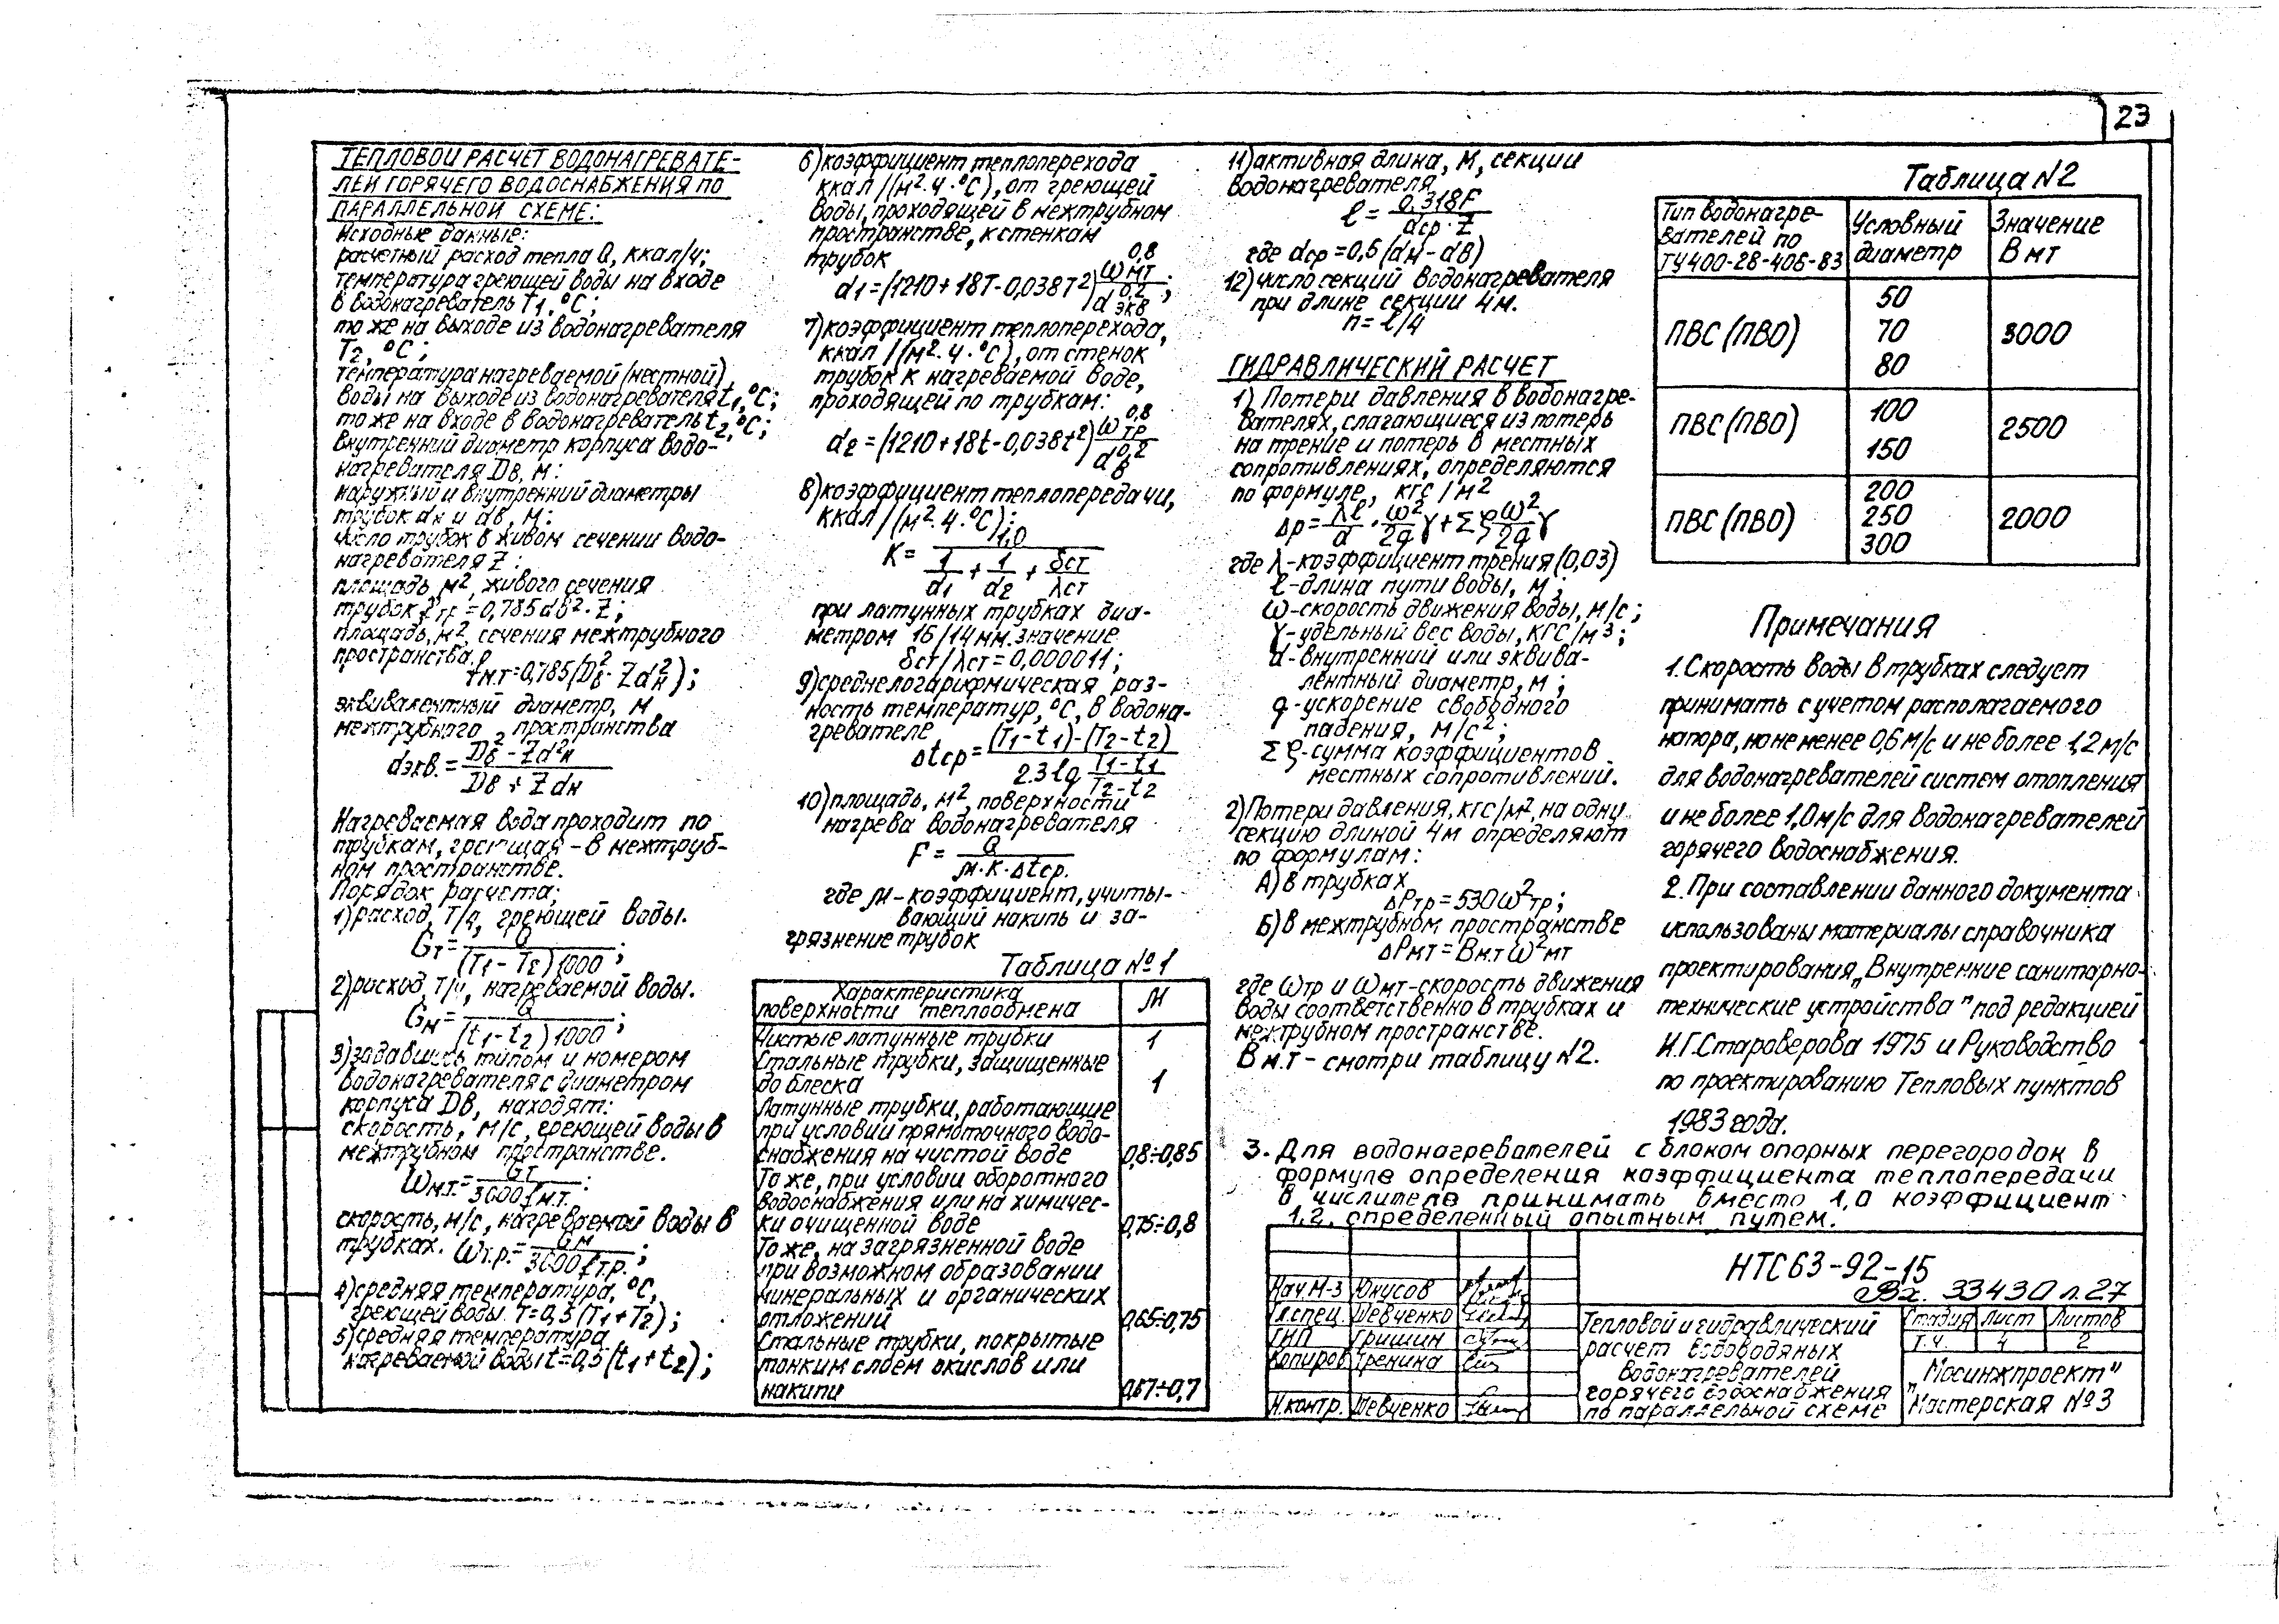 23
ТЕПЛОВОЙ РАСЧЕТ ВОДОНАГРЕВАТЕ-
ЛЕЙ ГОРЯЧЕГО ВОДОСНАБЖЕНИЯ ПО
ПАРАЛЛЕЛЬНОЙ СХЕМЕ:
Исходные данные:
расчетный расход тепла Q, ккал/ч;
температура греющей воды на входе
в водонагреватель T1, °C;
то же на выходе из водонагревателя
T2, °C;
температура нагреваемой (местной)
воды на выходе из водонагревателя t1, °C;
то же на входе в водонагреватель t2, °C;
внутренний диаметр корпуса водо-
нагревателя Dв, м:
наружный и внутренний диаметры
трубок dн и dв, м:
число трубок в живом сечении водо-
нагревателя Z:
площадь, м², живого сечения
трубок fтр = 0,785 dв² · Z;
площадь, м², сечения межтрубного
пространства.
fм.т = 0,785 (Dв² - Z dн²);
эквивалентный диаметр, м
межтрубного пространства
dэкв. = (Dв² - Z d²н) / (Dв + Z dн)
Нагреваемая вода проходит по
трубкам, греющая - в межтруб-
ном пространстве.
Порядок расчета:
1) расход, т/ч, греющей воды.
Gт = Q / ((T1 - T2) 1000);
2) расход, т/ч, нагреваемой воды.
Gн = Q / ((t1 - t2) 1000);
3) задавшись типом и номером
водонагревателя с диаметром
корпуса Dв, находят:
скорость, м/с, греющей воды в
межтрубном пространстве.
ωм.т. = Gт / 3600 fм.т.;
скорость, м/с, нагреваемой воды в
трубках. ωт.р. = Gн / 3600 fт.р.;
4) средняя температура, °C,
греющей воды. T = 0,5 (T1 + T2);
5) средняя температура
нагреваемой воды t = 0,5 (t1 + t2);
6) коэффициент теплоперехода
ккал/(м² · ч · °C), от греющей
воды, проходящей в межтрубном
пространстве, к стенкам
трубок
d1 = (1210 + 18T - 0,038T²) ωмт^0,8 / dэкв^0,2;
7) коэффициент теплоперехода,
ккал/(м² · ч · °C), от стенок
трубок к нагреваемой воде,
проходящей по трубкам:
d2 = (1210 + 18t - 0,038t²) ωтр^0,8 / dв^0,2
8) коэффициент теплопередачи,
ккал/(м² · ч · °C);
K = 1,0 / (1/d1 + 1/d2 + δст/λст)
при латунных трубках диа-
метром 16/14 мм. значение
δст/λст = 0,000011;
9) среднелогарифмическая раз-
ность температур, °C, в водона-
гревателе
Δtср = ((T1 - t1) - (T2 - t2)) / (2.3 lg (T1 - t1)/(T2 - t2))
10) площадь, м², поверхности
нагрева водонагревателя
F = Q / (М · K · Δtср.)
где М - коэффициент, учиты-
вающий накипь и за-
грязнение трубок
Таблица №1
Характеристика поверхности теплообмена | М
Чистые латунные трубки | 1
Стальные трубки, защищенные
до блеска | 1
Латунные трубки, работающие
при условии прямоточного водо-
снабжения на чистой воде | 0,8÷0,85
То же, при условии оборотного
водоснабжения или на химичес-
ки очищенной воде | 0,75÷0,8
То же, на загрязненной воде
при возможном образовании
минеральных и органических
отложений | 0,65÷0,75
Стальные трубки, покрытые
тонким слоем окислов или
накипи | 0,67÷0,7
11) активная длина, м, секции
водонагревателя
ℓ = 0,318F / (dср · Z)
где dср = 0,5 (dн - dв)
12) число секций водонагревателя
при длине секции 4м.
n = ℓ/4
ГИДРАВЛИЧЕСКИЙ РАСЧЕТ
1) Потери давления в водонагре-
вателях, слагающиеся из потерь
на трение и потерь в местных
сопротивлениях, определяются
по формуле, кгс/м²
Δp = λℓ/d · ω²/2g γ + Σξ ω²/2g γ
где λ - коэффициент трения (0,03)
ℓ - длина пути воды, м;
ω - скорость движения воды, м/с;
γ - удельный вес воды, кгс/м³;
d - внутренний или эквива-
лентный диаметр, м;
g - ускорение свободного
падения, м/с²;
Σξ - сумма коэффициентов
местных сопротивлений.
2) Потери давления, кгс/м², на одну
секцию длиной 4м определяют
по формулам:
А) в трубках
ΔPтр = 530 ω²тр;
Б) в межтрубном пространстве
ΔPмт = Вм.т ω²мт
где ωтр и ωмт - скорость движения
воды соответственно в трубках и
межтрубном пространстве.
Вм.т - смотри таблицу N2.
Таблица N2
Тип водонагре-
вателей по
ТУ 400-28-406-83 | Условный диаметр | Значение Вмт
ПВС (ПВО) | 50 70 80 | 3000
ПВС (ПВО) | 100 150 | 2500
ПВС (ПВО) | 200 250 300 | 2000
Примечания
1. Скорость воды в трубках следует
принимать с учетом располагаемого
напора, но не менее 0,6 м/с и не более 1,2 м/с
для водонагревателей систем отопления
и не более 1,0 м/с для водонагревателей
горячего водоснабжения.
2. При составлении данного документа
использованы материалы справочника
проектирования „Внутренние санитарно-
технические устройства" под редакцией
И.Г. Староверова 1975 и Руководство
по проектированию Тепловых пунктов
1983 года.
3. Для водонагревателей с блоком опорных перегородок в
формуле определения коэффициента теплопередачи
в числителе принимать вместо 1,0 коэффициент
1,2, определенный опытным путем.
НТС 63-92-15
Вх. 33430 л.27
Нач М-3 Юнусов
Гл.спец. Шевченко
ГИП Гришин
Копиров Тренина
Н.контр. Шевченко
Тепловой и гидравлический
расчет водоводяных
водонагревателей
горячего водоснабжения
по параллельной схеме
Стадия Лист Листов
Т.ч. 4 2
„Мосинжпроект"
Мастерская №3